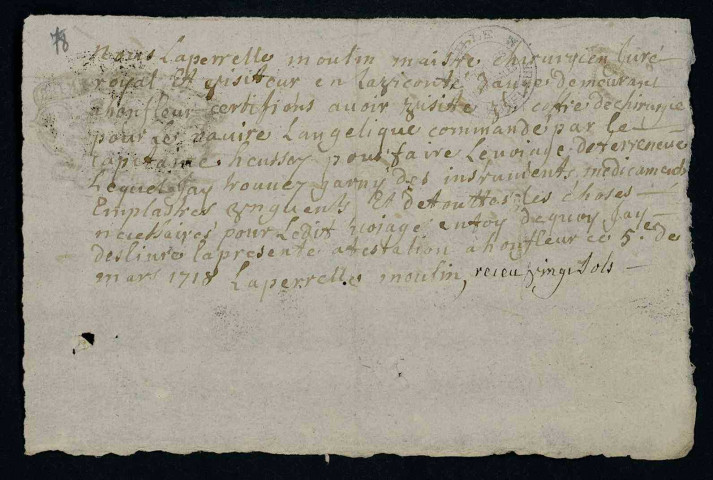 78
Nous Laperrelle moulin maistre chirurgien juré
royal Et visiteur en la viconté dauge demeurant
a honfleur certifions auoir visité un cofre de chirurgie
pour le nauire Langelique commandé par le
capitaine heussey pour faire Le voiage de terreneuve
Lequel Jay trouuez garny des instruments medicaments
Emplastres onguents Et de touttes les choses
necessaires pour Ledit voiage en foy de quoy Jay
deslivré la presente atestation a honfleur ce 5.e de
mars 1718 Laperrelle moulin, receu vingt sols